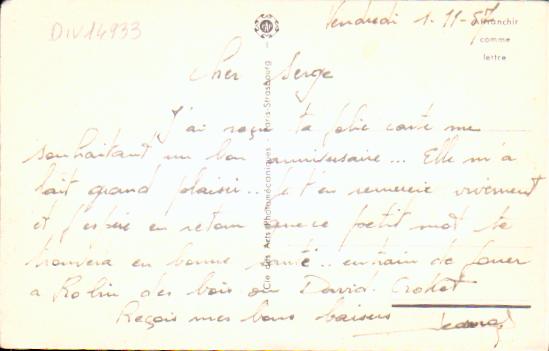 DIV14933
Vendredi 1-11-57
Affranchir
comme
lettre
Cher Serge
J'ai reçu ta jolie carte me
souhaitant un bon anniversaire... Elle m'a
fait grand plaisir.. Je t'en remercie vivement
et j'espère en retour que ce petit mot te
trouvera en bonne santé.. en train de jouer
a Robin des bois ou David Croket
Reçois mes bons baisers
Cie des Arts Photomécaniques Paris-Strasbourg